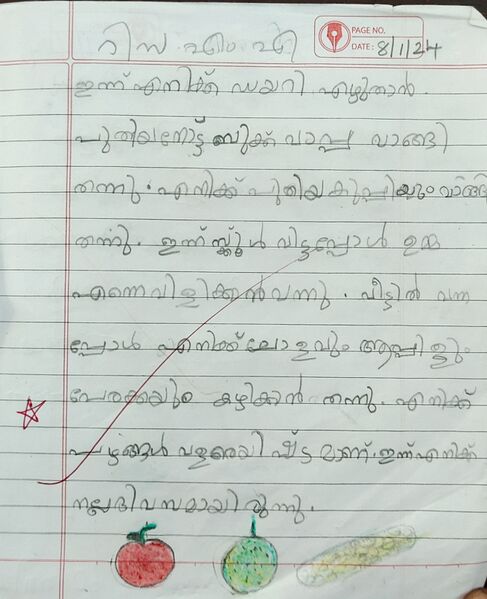 റിസ എം എ
PAGE NO.
DATE: 8/1/24
ഇന്ന് എനിക്ക് ഡയറി എഴുതാൻ.
പുതിയനോട്ട് ബുക്ക് വാപ്പ വാങ്ങി
തന്നു. എനിക്ക് പുതിയകുപ്പിയും വാങ്ങി
തന്നു. ഇന്ന് സ്ക്കൂൾ വിട്ടപ്പോൾ ഉമ്മ
എന്നെവിളിക്കൻവന്നു. വീട്ടിൽ വന്ന
പ്പോൾ എനിക്ക് ചോളവും ആപ്പിളും
പേരക്കയും കഴിക്കൻ തന്നു. എനിക്ക്
പഴങ്ങൾ വളരെയിഷ്ട മാണ്. ഇന്ന് എനിക്ക്
നല്ലദിവസമായിരുന്നു.